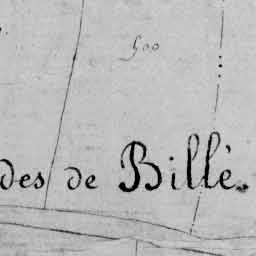 500
des de Billé.